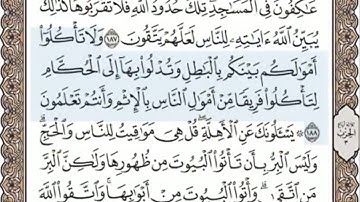 عَٰكِفُونَ فِي ٱلْمَسَٰجِدِۗ تِلْكَ حُدُودُ ٱللَّهِ فَلَا تَقْرَبُوهَاۗ كَذَٰلِكَ
يُبَيِّنُ ٱللَّهُ ءَايَٰتِهِۦ لِلنَّاسِ لَعَلَّهُمْ يَتَّقُونَ ١٨٧ وَلَا تَأْكُلُوٓاْ
أَمْوَٰلَكُم بَيْنَكُم بِٱلْبَٰطِلِ وَتُدْلُواْ بِهَآ إِلَى ٱلْحُكَّامِ
لِتَأْكُلُواْ فَرِيقًا مِّنْ أَمْوَٰلِ ٱلنَّاسِ بِٱلْإِثْمِ وَأَنتُمْ تَعْلَمُونَ
١٨٨ ۞ يَسْـَٔلُونَكَ عَنِ ٱلْأَهِلَّةِۖ قُلْ هِيَ مَوَٰقِيتُ لِلنَّاسِ وَٱلْحَجِّۗ
وَلَيْسَ ٱلْبِرُّ بِأَن تَأْتُواْ ٱلْبُيُوتَ مِن ظُهُورِهَا وَلَٰكِنَّ ٱلْبِرَّ
مَنِ ٱتَّقَىٰۗ وَأْتُواْ ٱلْبُيُوتَ مِنْ أَبْوَٰبِهَاۚ وَٱتَّقُواْ ٱللَّهَ